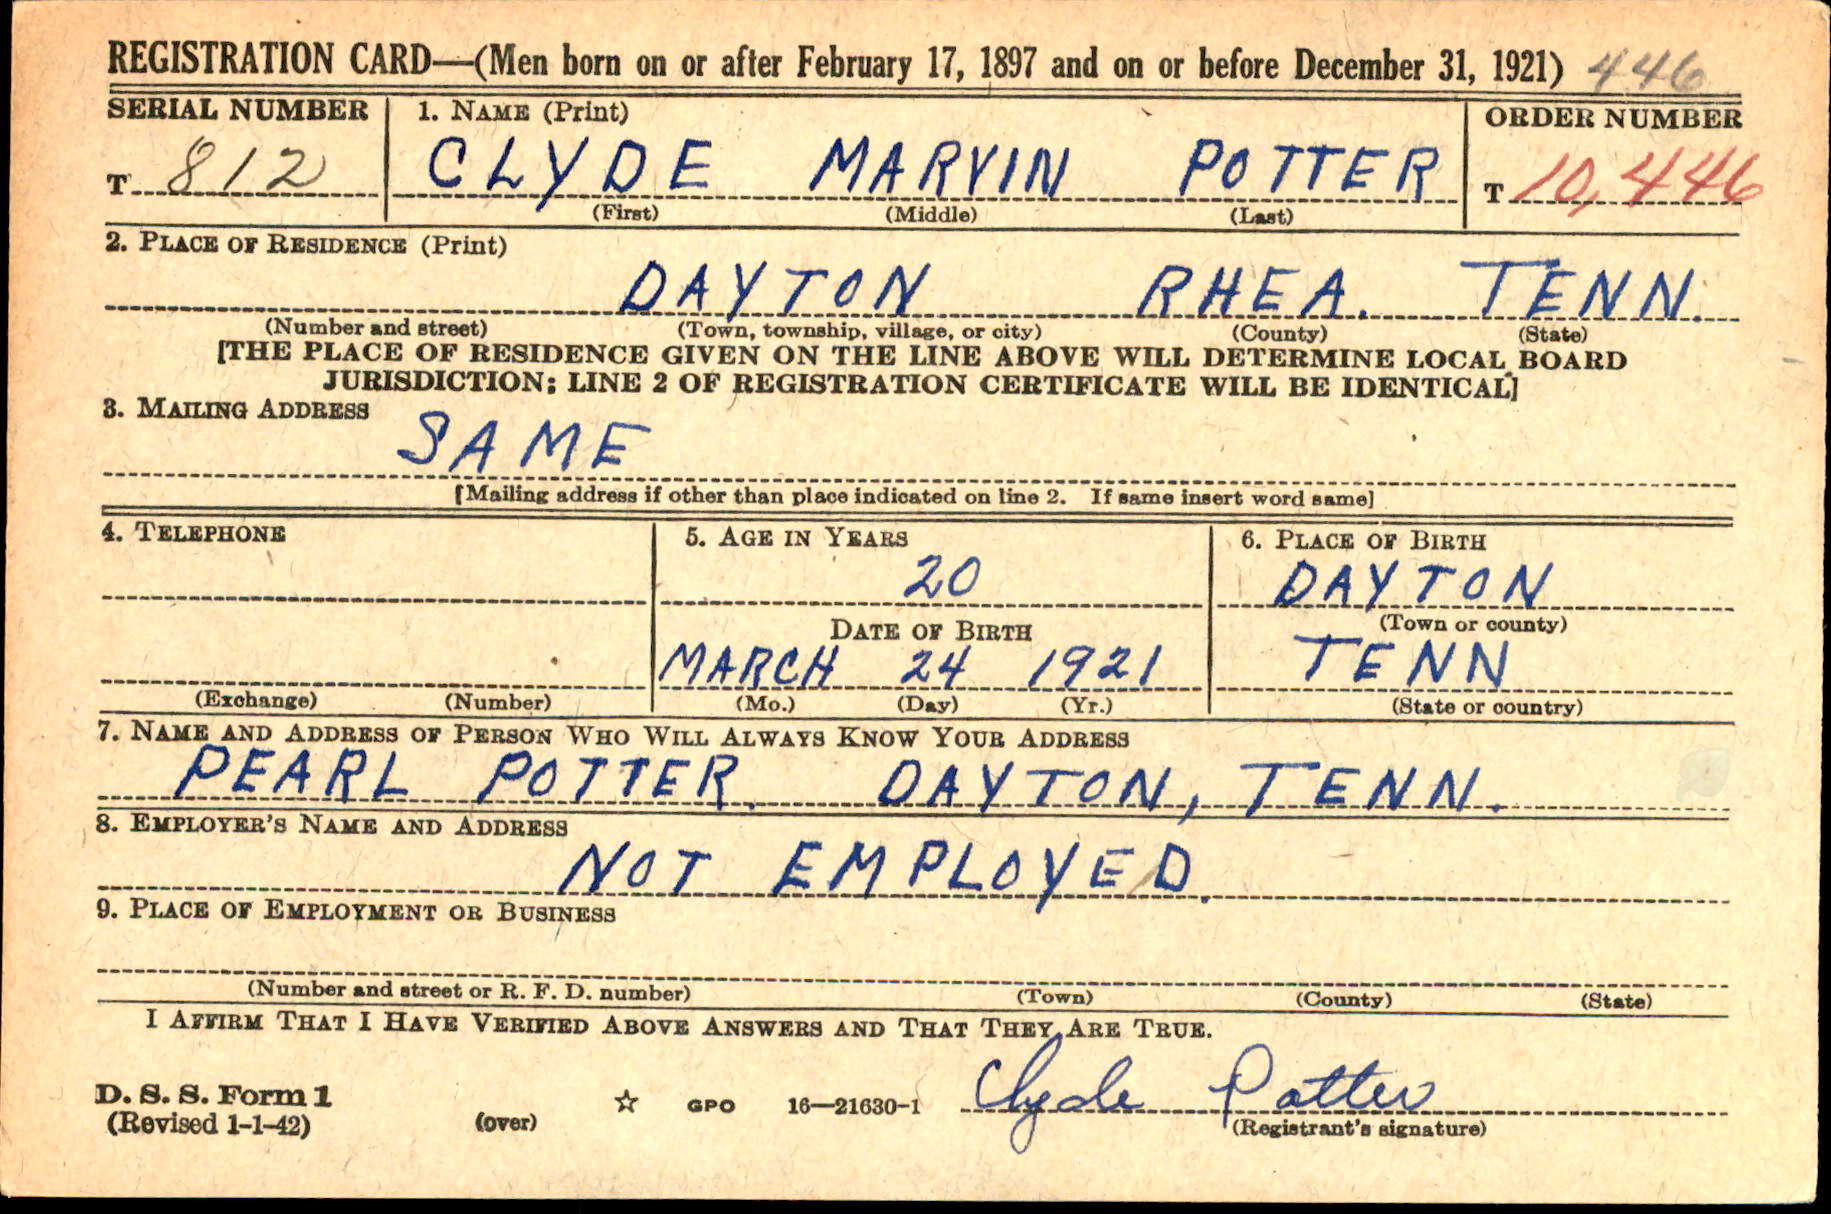 REGISTRATION CARD—(Men born on or after February 17, 1897 and on or before December 31, 1921) 446
SERIAL NUMBER 1. NAME (Print) ORDER NUMBER
T 812 CLYDE MARVIN POTTER T 10,446
(First) (Middle) (Last)
2. PLACE OF RESIDENCE (Print)
DAYTON RHEA. TENN.
(Number and street) (Town, township, village, or city) (County) (State)
[THE PLACE OF RESIDENCE GIVEN ON THE LINE ABOVE WILL DETERMINE LOCAL BOARD
JURISDICTION; LINE 2 OF REGISTRATION CERTIFICATE WILL BE IDENTICAL]
3. MAILING ADDRESS
SAME
[Mailing address if other than place indicated on line 2. If same insert word same]
4. TELEPHONE 5. AGE IN YEARS 6. PLACE OF BIRTH
20 DAYTON
DATE OF BIRTH (Town or county)
MARCH 24 1921 TENN
(Exchange) (Number) (Mo.) (Day) (Yr.) (State or country)
7. NAME AND ADDRESS OF PERSON WHO WILL ALWAYS KNOW YOUR ADDRESS
PEARL POTTER. DAYTON, TENN.
8. EMPLOYER'S NAME AND ADDRESS
NOT EMPLOYED.
9. PLACE OF EMPLOYMENT OR BUSINESS
(Number and street or R. F. D. number) (Town) (County) (State)
I AFFIRM THAT I HAVE VERIFIED ABOVE ANSWERS AND THAT THEY ARE TRUE.
D. S. S. Form 1
(Revised 1-1-42) (over) ☆ GPO 16—21630-1 Clyde Potter
(Registrant's signature)